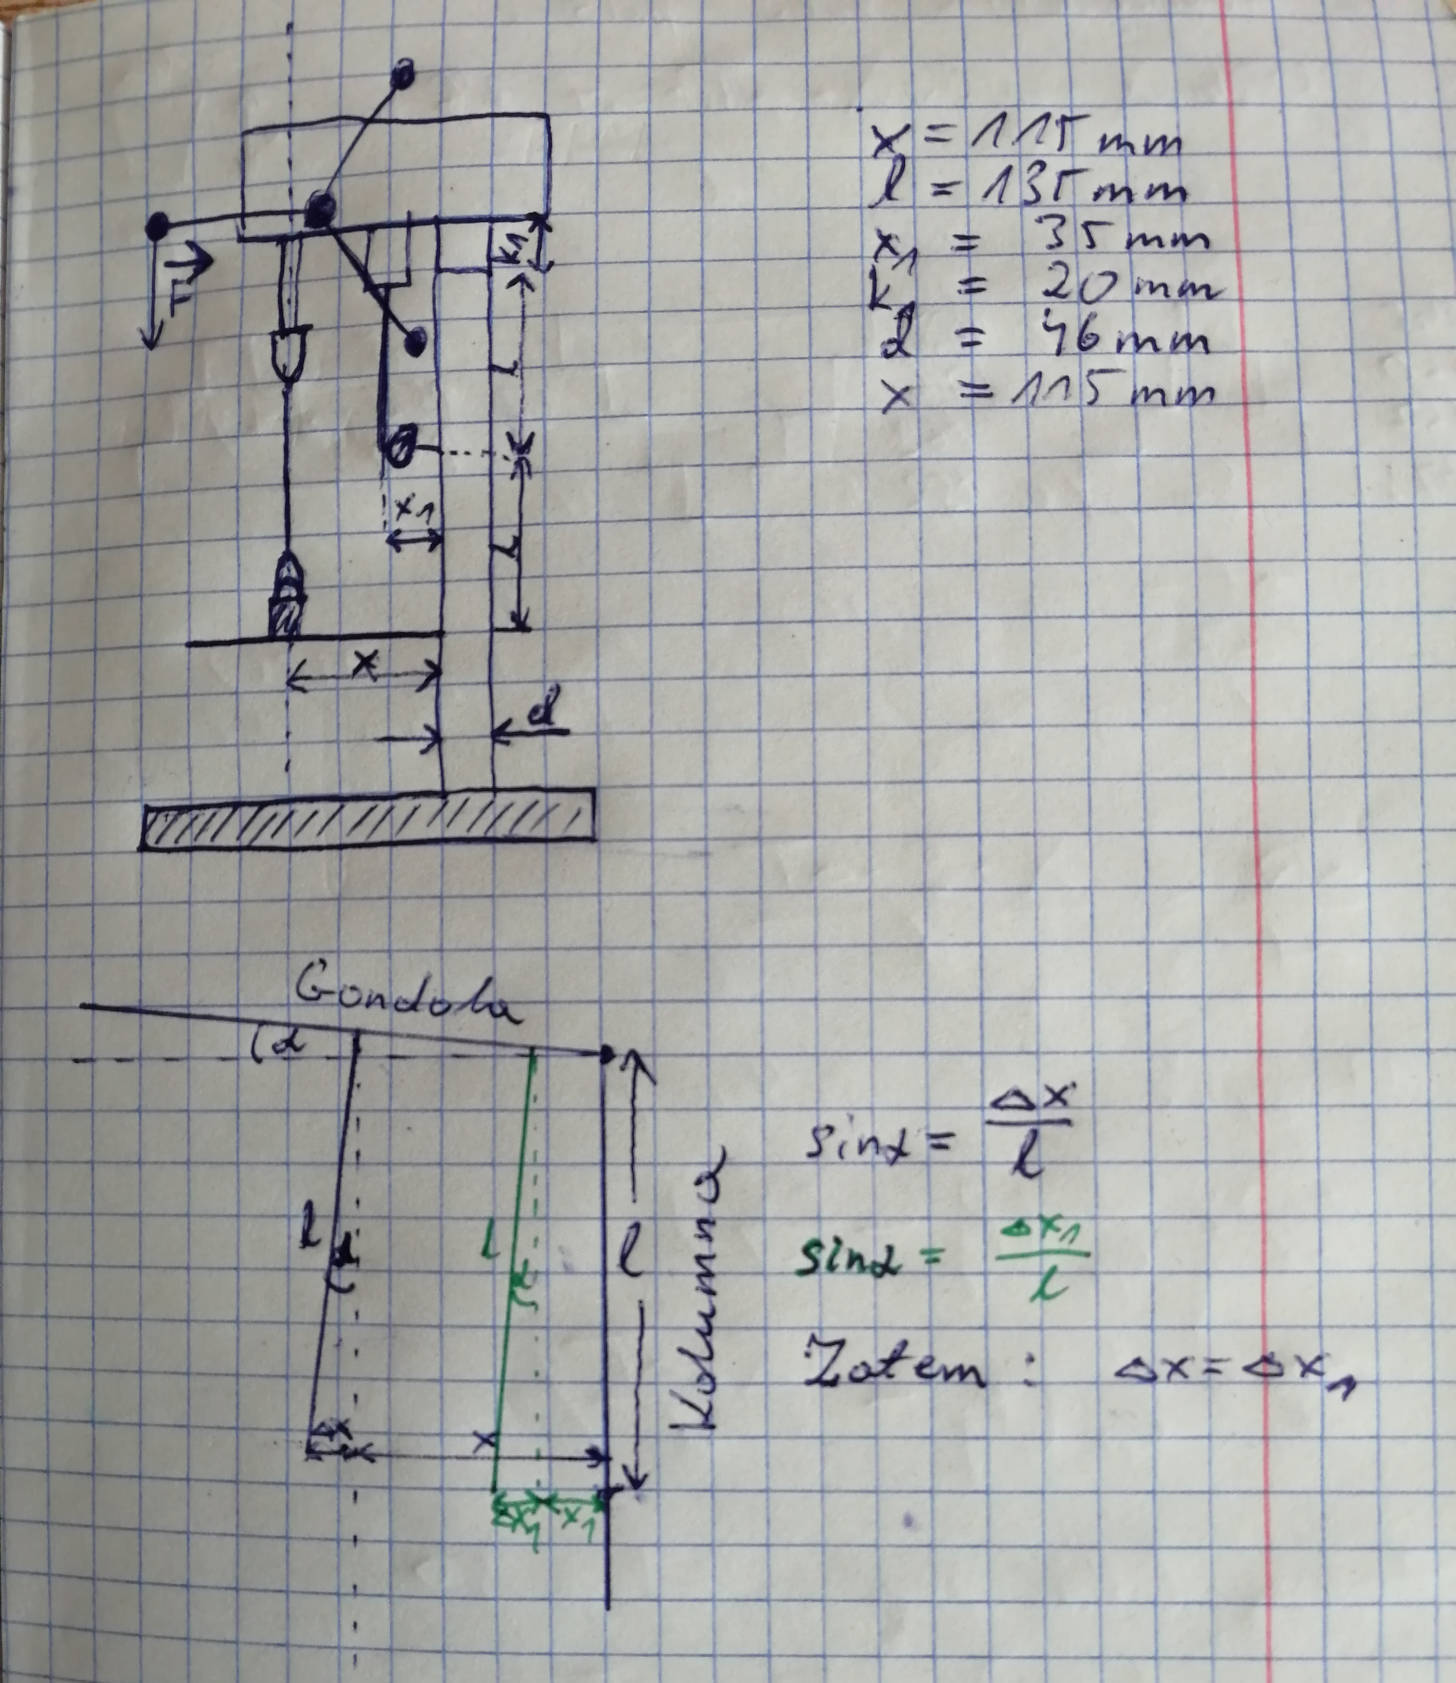 x = 115 mm
l = 135 mm
x₁ = 35 mm
k₁ = 20 mm
d = 46 mm
x = 115 mm
F
k₁
l
x₁
l
x
d
Gondola
α
l
α
l
α
l
Kolumna
Δx
x
Δx₁
x₁
sinα = Δx/l
sinα = Δx₁/l
Zatem : Δx = Δx₁